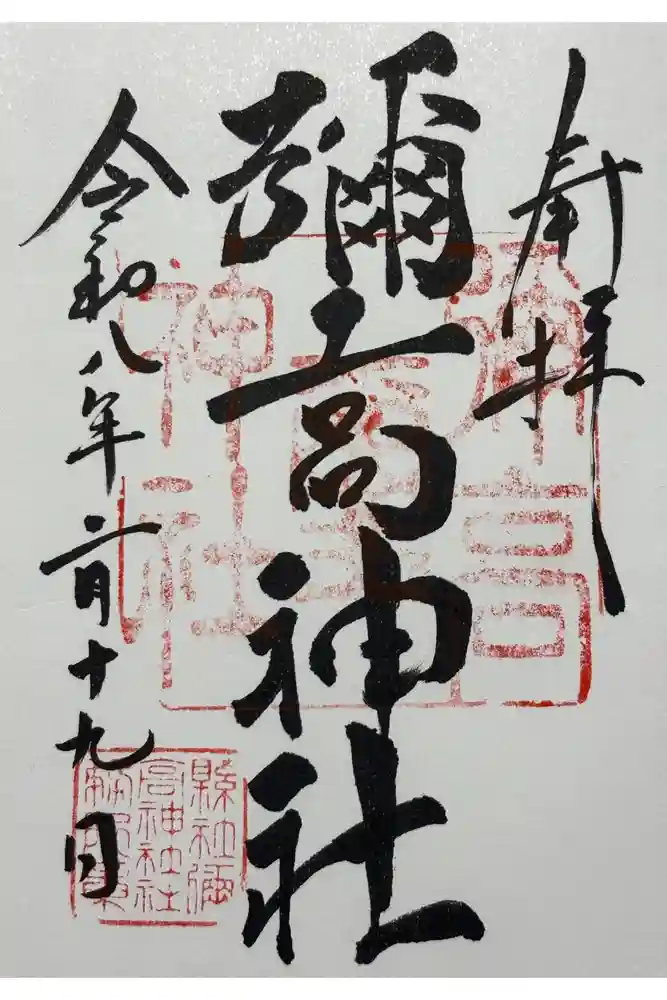 奉拝
彌高神社
令和八年二月十九日
彌高
神社
縣社彌
高神社